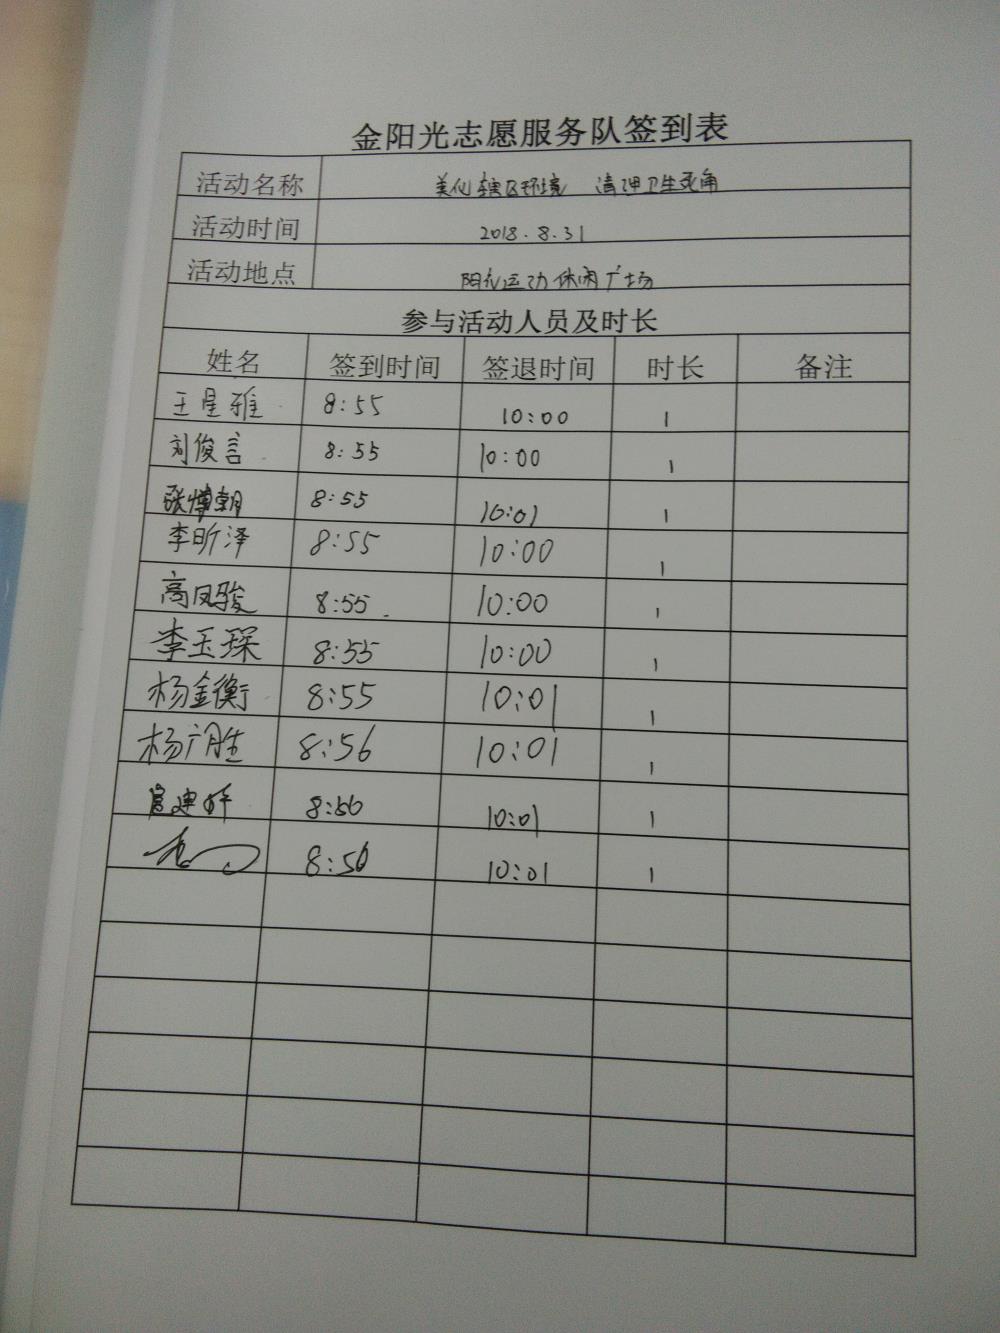 金阳光志愿服务队签到表
活动名称 美化辖区环境 清理卫生死角
活动时间 2018.8.31
活动地点 阳光运动休闲广场
参与活动人员及时长
姓名 签到时间 签退时间 时长 备注
王星雅 8:55 10:00 1
刘俊言 8:55 10:00 1
张博朝 8:55 10:01 1
李昕泽 8:55 10:00 1
高凤骏 8:55 10:00 1
李玉琛 8:55 10:00 1
杨金衡 8:55 10:01 1
杨广胜 8:56 10:01 1
8:56 10:01 1
8:56 10:01 1